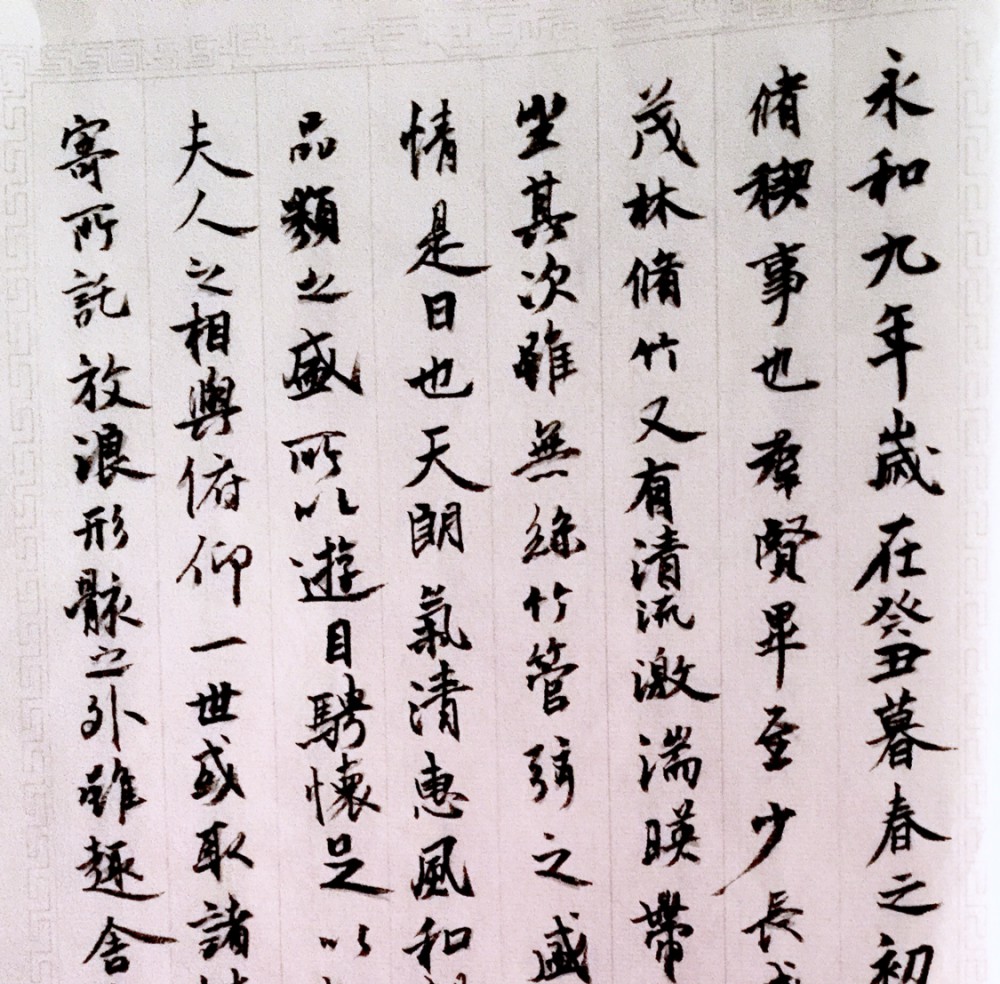 永和九年歲在癸丑暮春之初
脩稧事也羣賢畢至少長咸
茂林脩竹又有清流激湍暎帶
坐其次雖無絲竹管弦之盛
情是日也天朗氣清惠風和
品類之盛所以遊目騁懷足以
夫人之相與俯仰一世或取諸
寄所託放浪形骸之外雖趣舍